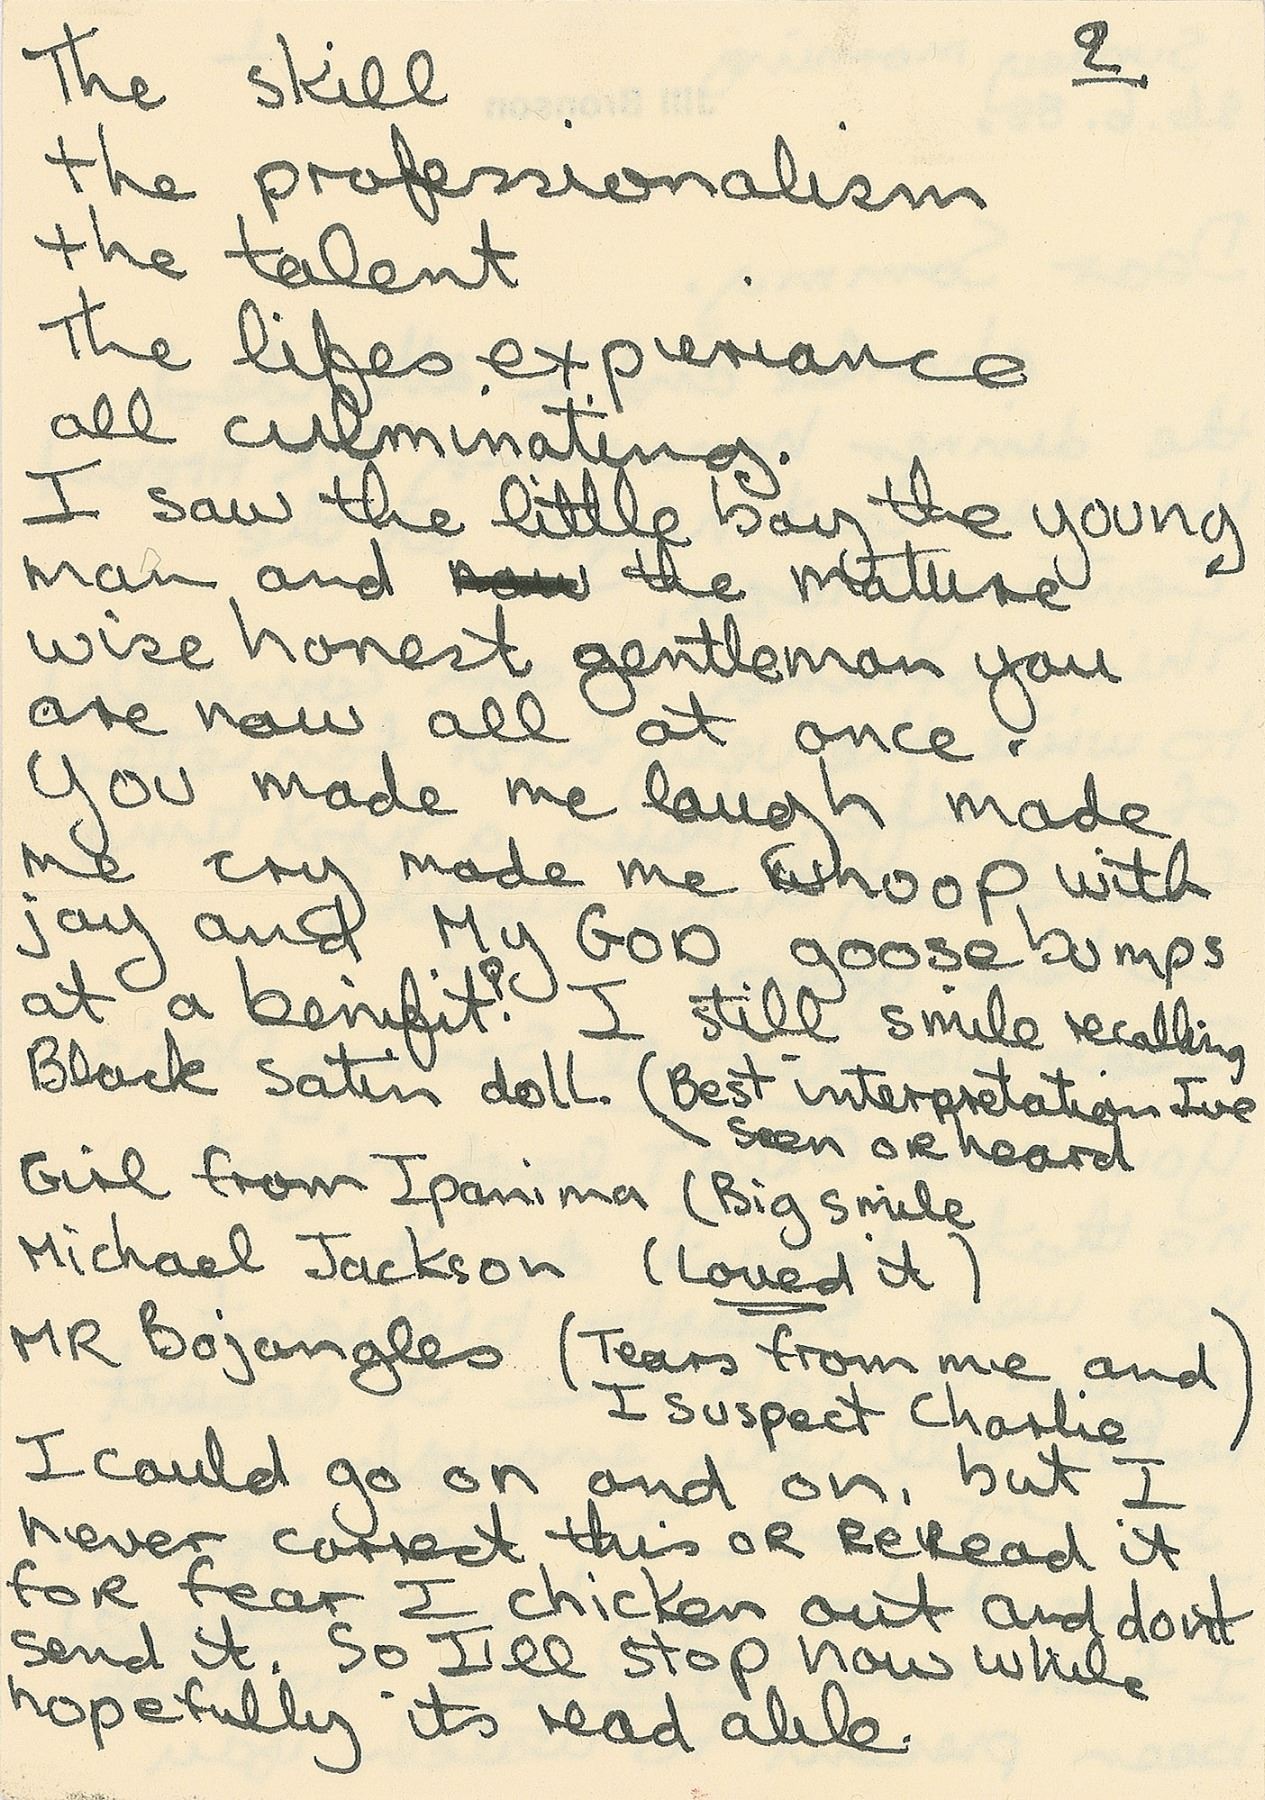 2
The skill
the professionalism
the talent
The lifes experiance
all culminating.
I saw the little boy the young
man and now the mature
wise honest gentleman you
are now all at once.
You made me laugh made
me cry made me whoop with
joy and My GOD goosebumps
at a benifit? I still smile recalling
Black satin doll. (Best interpretation Ive
seen OR heard
Girl from Ipanima (Big smile
Michael Jackson (Loved it)
MR Bojangles (Tears from me and)
I suspect Charlie
I could go on and on, but I
never correct this OR REREad it
FOR fear I chicken out and dont
send it. So I'll stop now while
hopefully its read able.